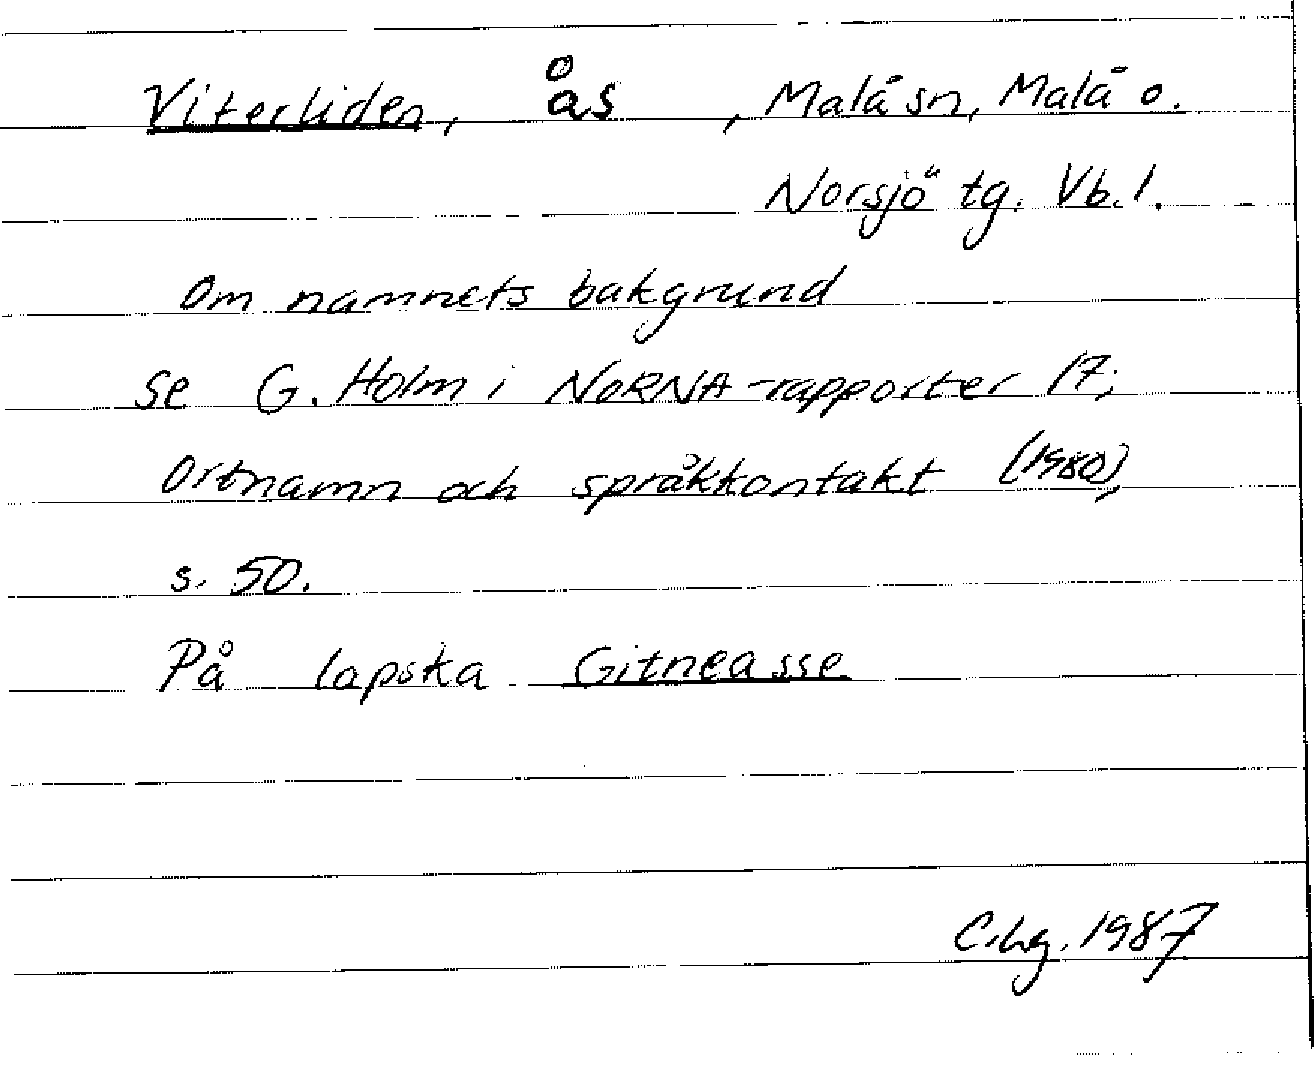 Viterliden, ås, Malå sn, Malå o.
Norsjö tg. Vb. l.
Om namnets bakgrund
se G. Holm i NORNA-rapporter 17;
Ortnamn och språkkontakt (1980),
s. 50.
På lapska Gitneasse
C.hg. 1987